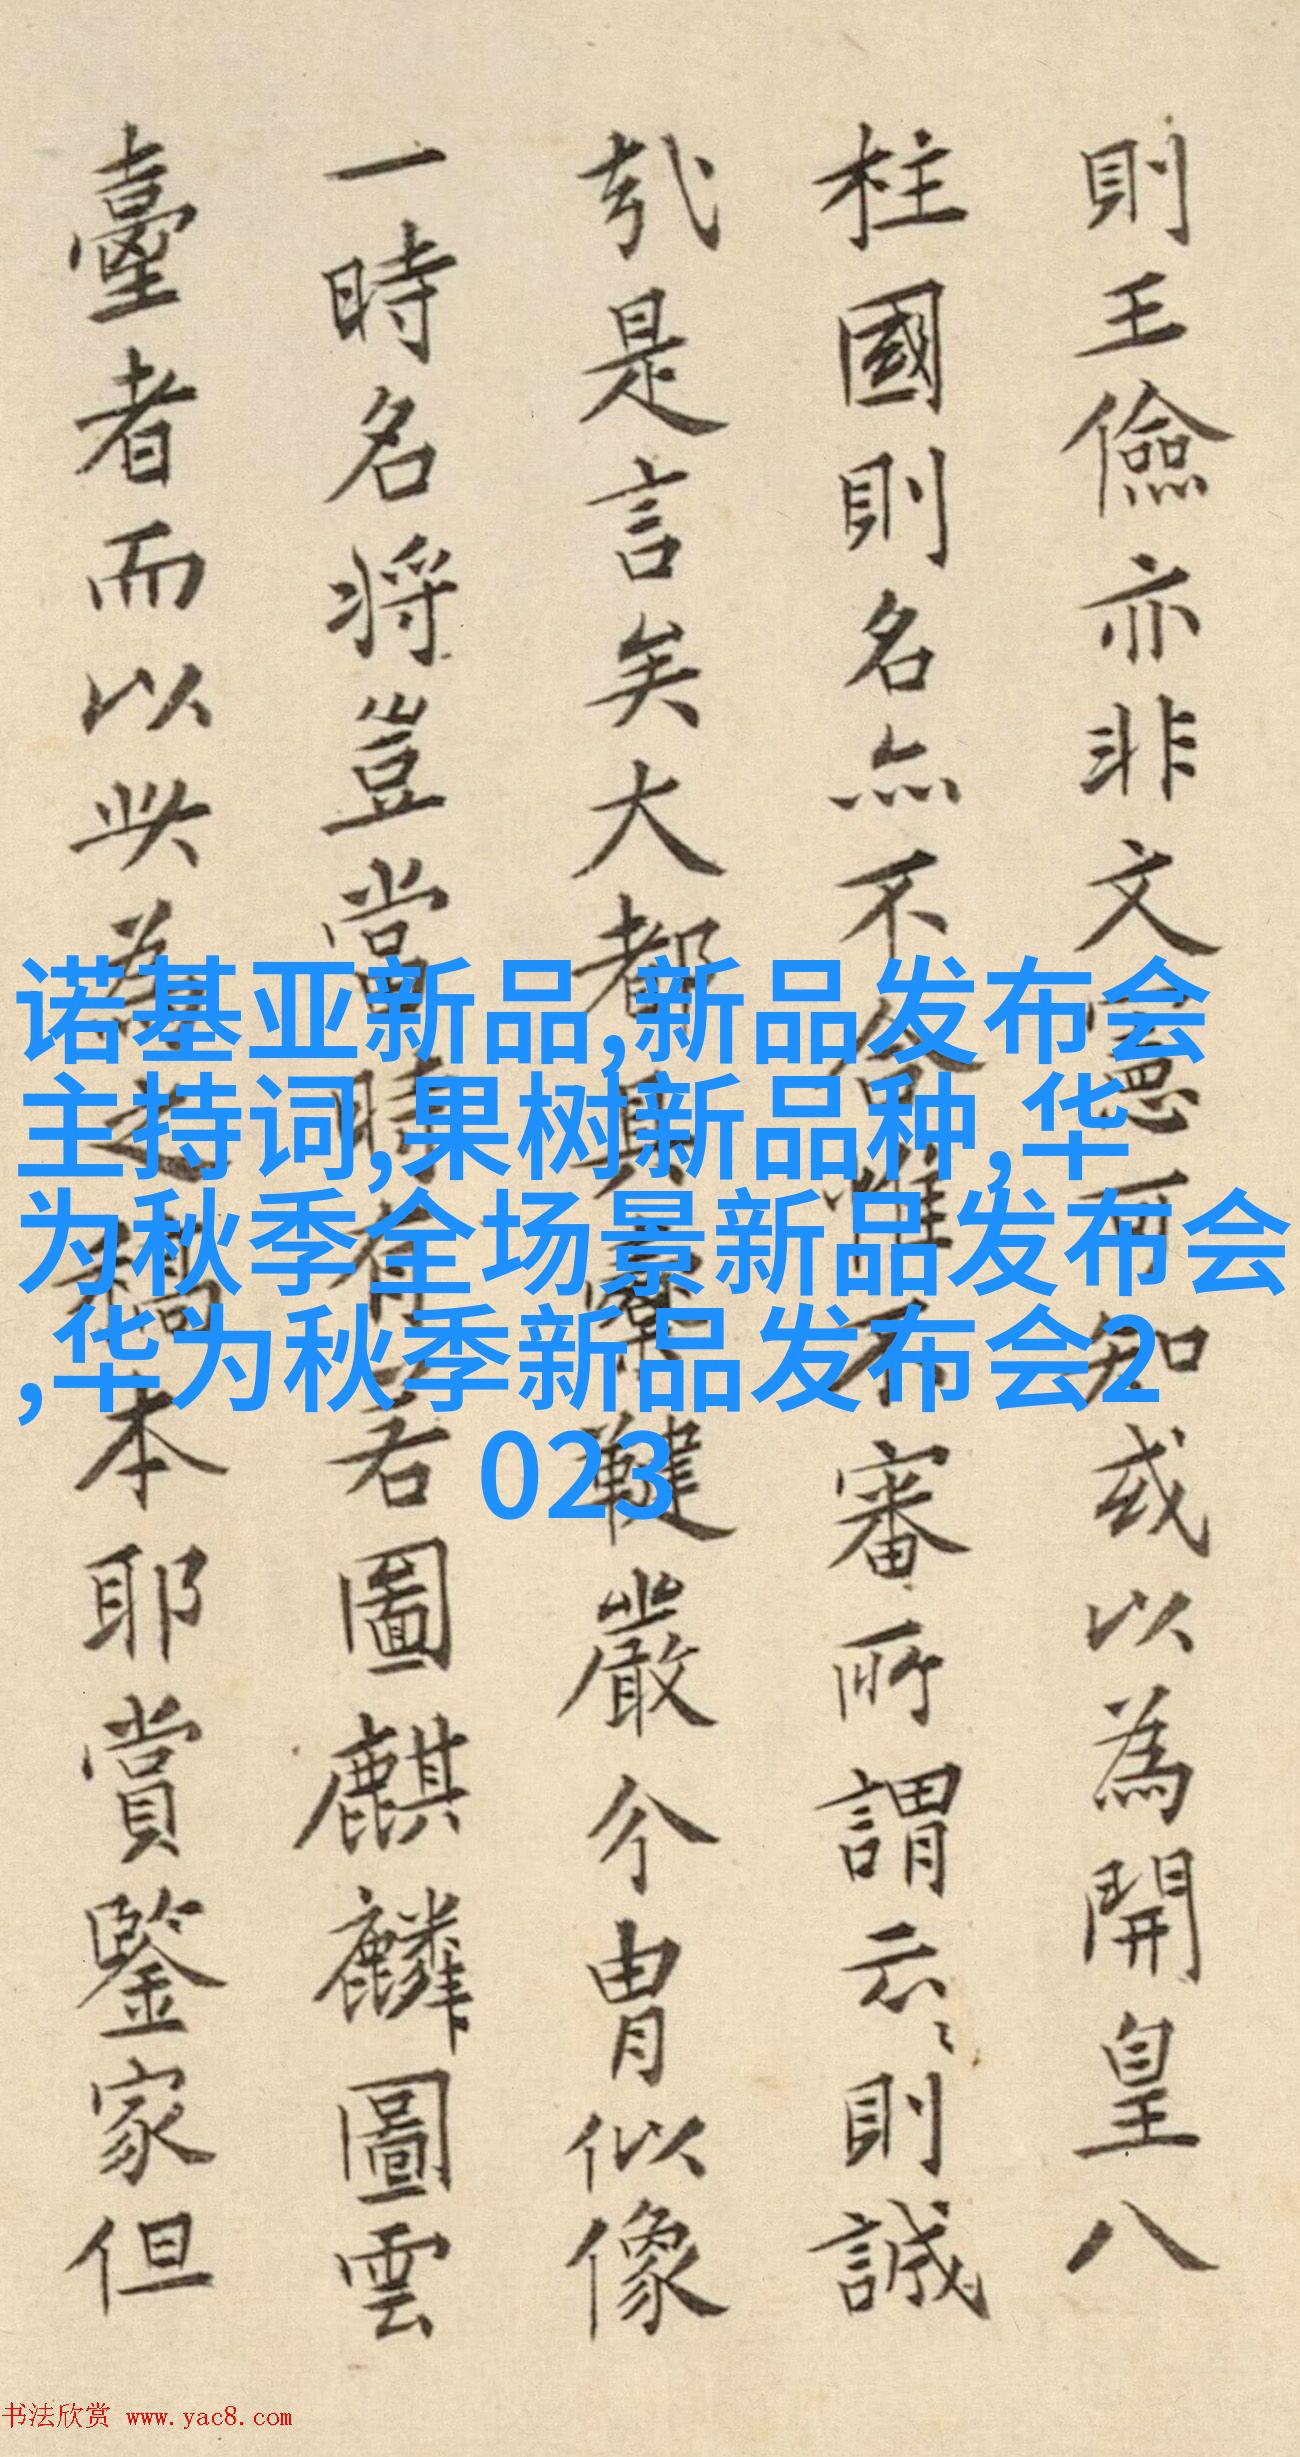 則王儉亦非文憲可知或以為開皇八
柱國則名亦不合惟不審所謂云云則誠
哉是言矣大都具櫜鞬嚴介胄似像
一時名将豈當時有若圖麒麟圖雲
臺者而以此為之稿本耶賞鑒家但
诺基亚新品,新品发布会
主持词,果树新品种,华
为秋季全场景新品发布会
,华为秋季新品发布会2
023
书法欣赏 www.yac8.com